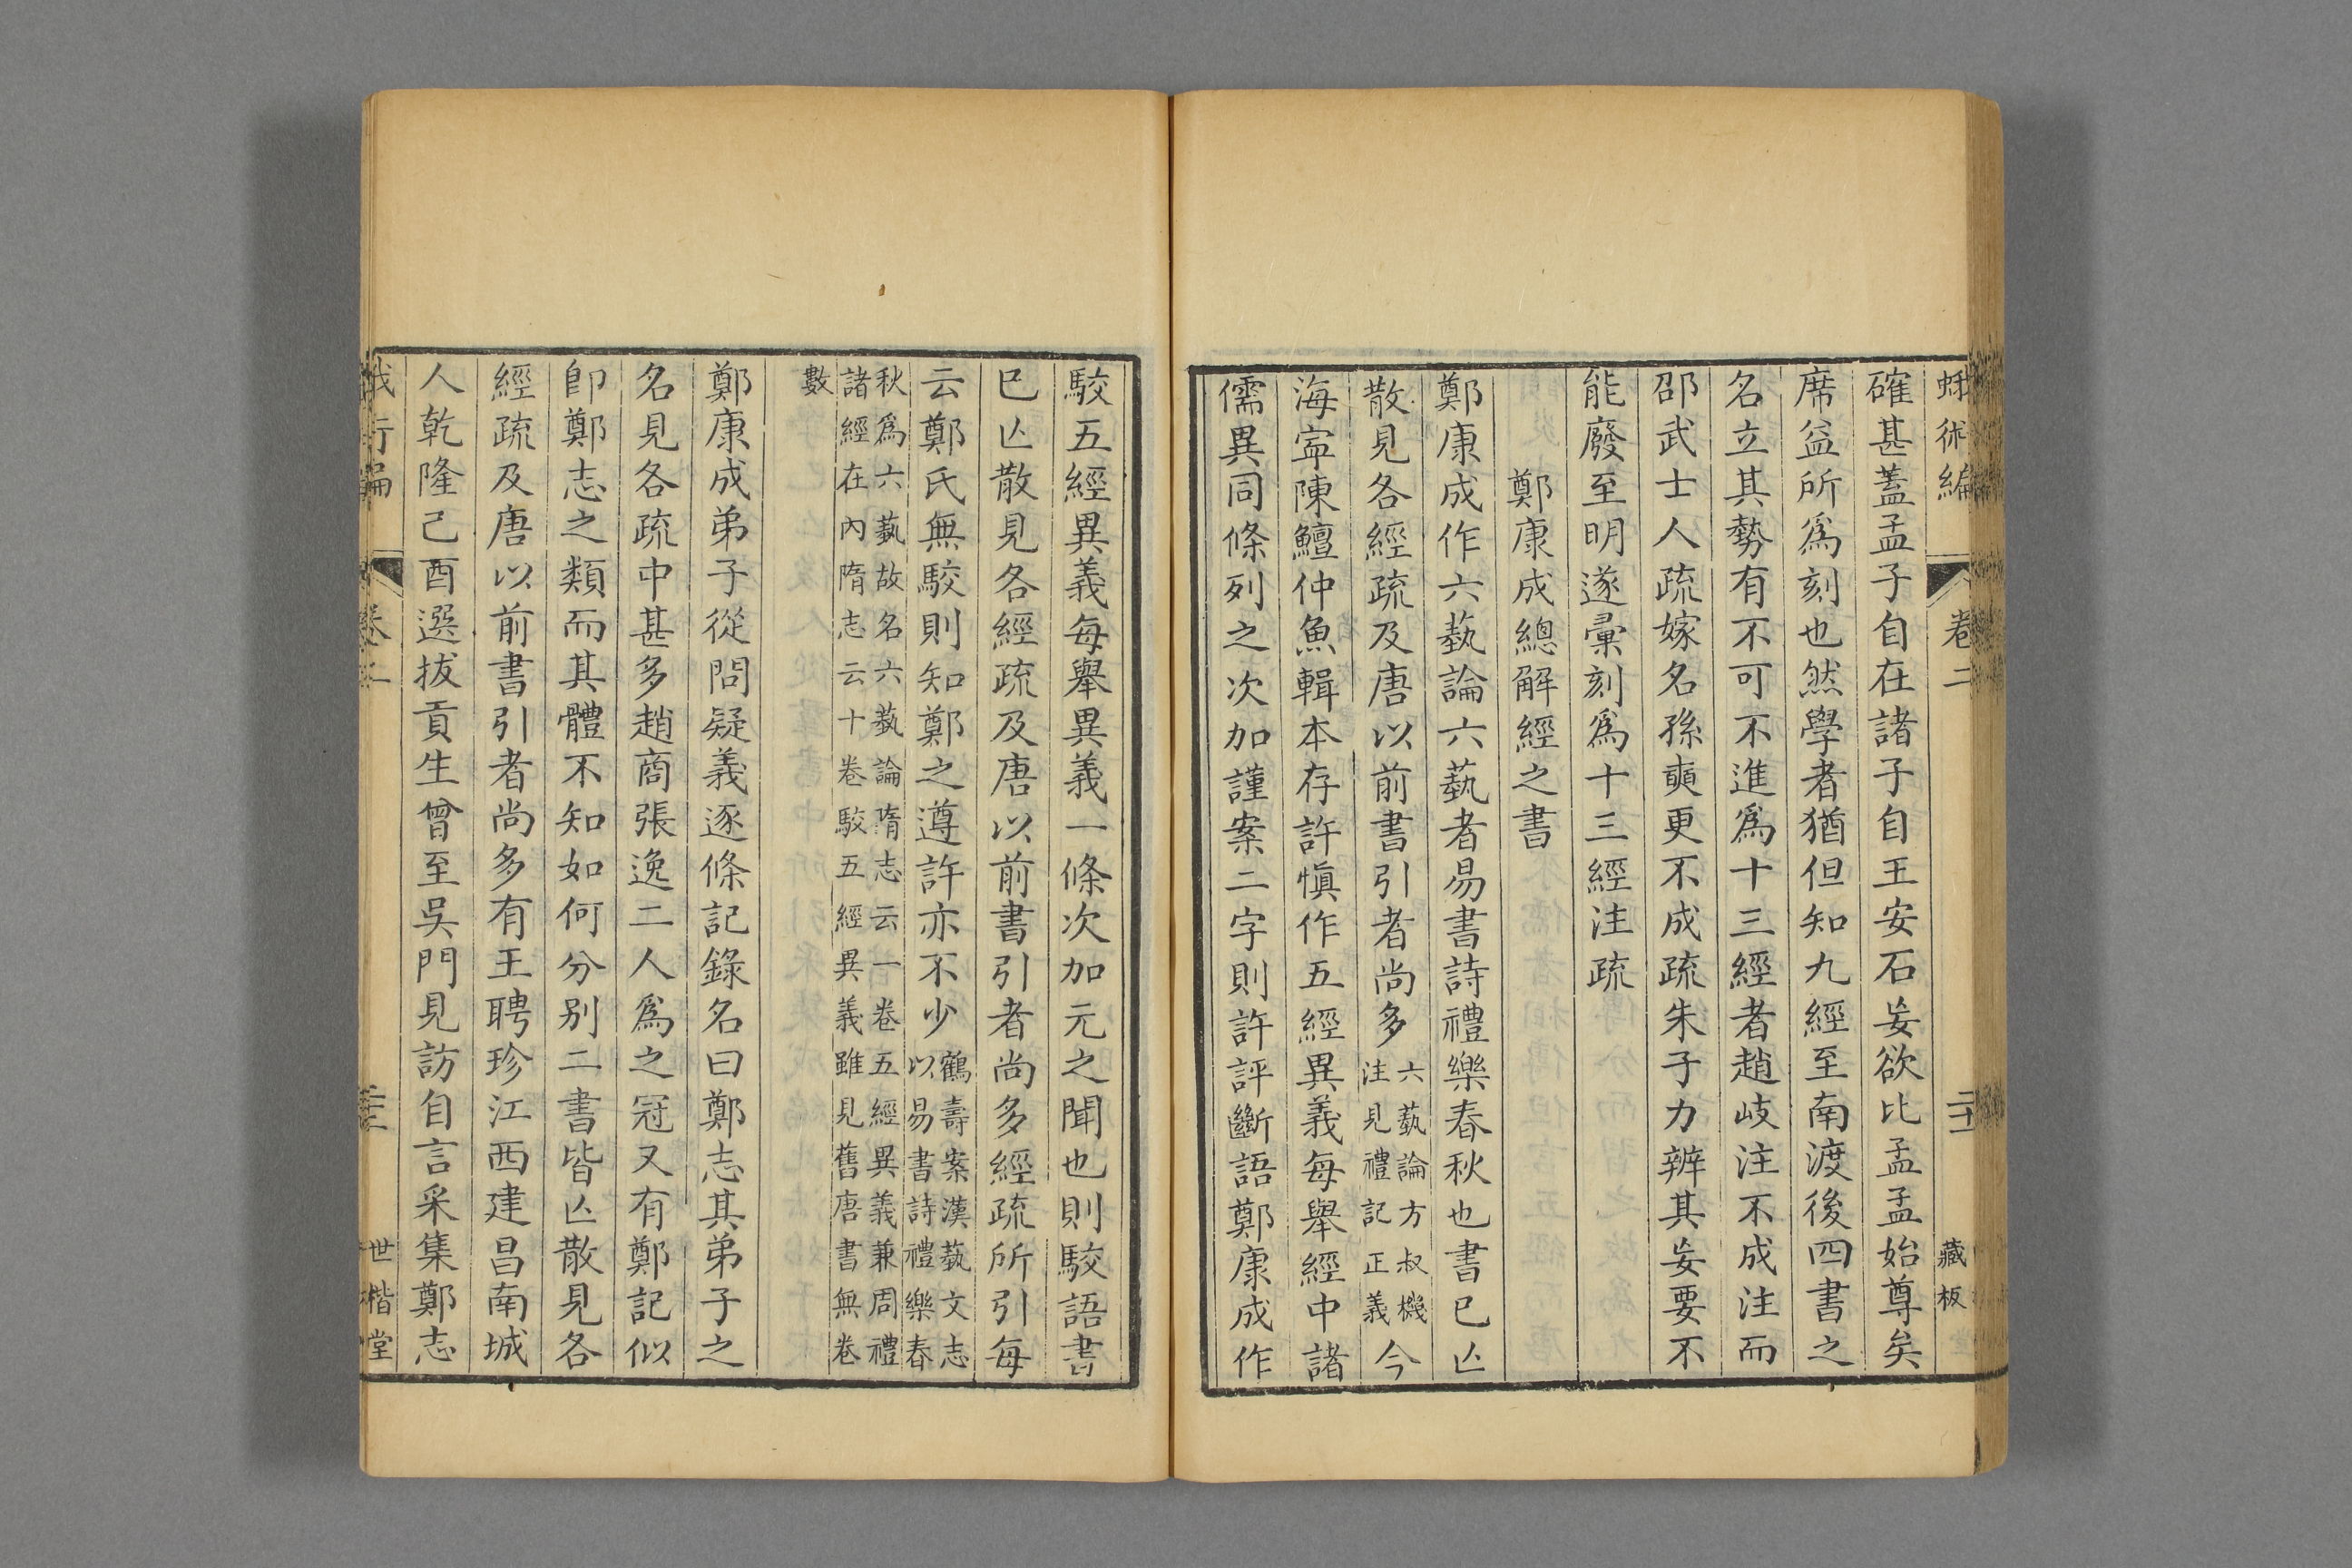 蛾術編 卷二 藏板
確甚蓋孟子自在諸子自王安石妄欲比孟孟始尊矣
席益所爲刻也然學者猶但知九經至南渡後四書之
名立其勢有不可不進爲十三經者趙岐注不成注而
邵武士人疏嫁名孫奭更不成疏朱子力辨其妄要不
能廢至明遂彙刻爲十三經注疏
鄭康成總解經之書
鄭康成作六蓺論六蓺者易書詩禮樂春秋也書已亾
散見各經疏及唐以前書引者尚多六蓺論方叔機注見禮記正義今
海寧陳鱣仲魚輯本存許愼作五經異義每舉經中諸
儒異同條列之次加謹案二字則許評斷語鄭康成作
駮五經異義每舉異義一條次加元之聞也則駮語書
已亾散見各經疏及唐以前書引者尚多經疏所引每
云鄭氏無駮則知鄭之遵許亦不少鶴壽案漢蓺文志以易書詩禮樂春
秋爲六蓺故名六蓺論隋志云一卷五經異義兼周禮
諸經在內隋志云十卷駮五經異義雖見舊唐書無卷
數
鄭康成弟子從問疑義逐條記錄名曰鄭志其弟子之
名見各疏中甚多趙商張逸二人爲之冠又有鄭記似
卽鄭志之類而其體不知如何分别二書皆亾散見各
經疏及唐以前書引者尚多有王聘珍江西建昌南城
人乾隆己酉選拔貢生曾至吳門見訪自言采集鄭志
世楷堂